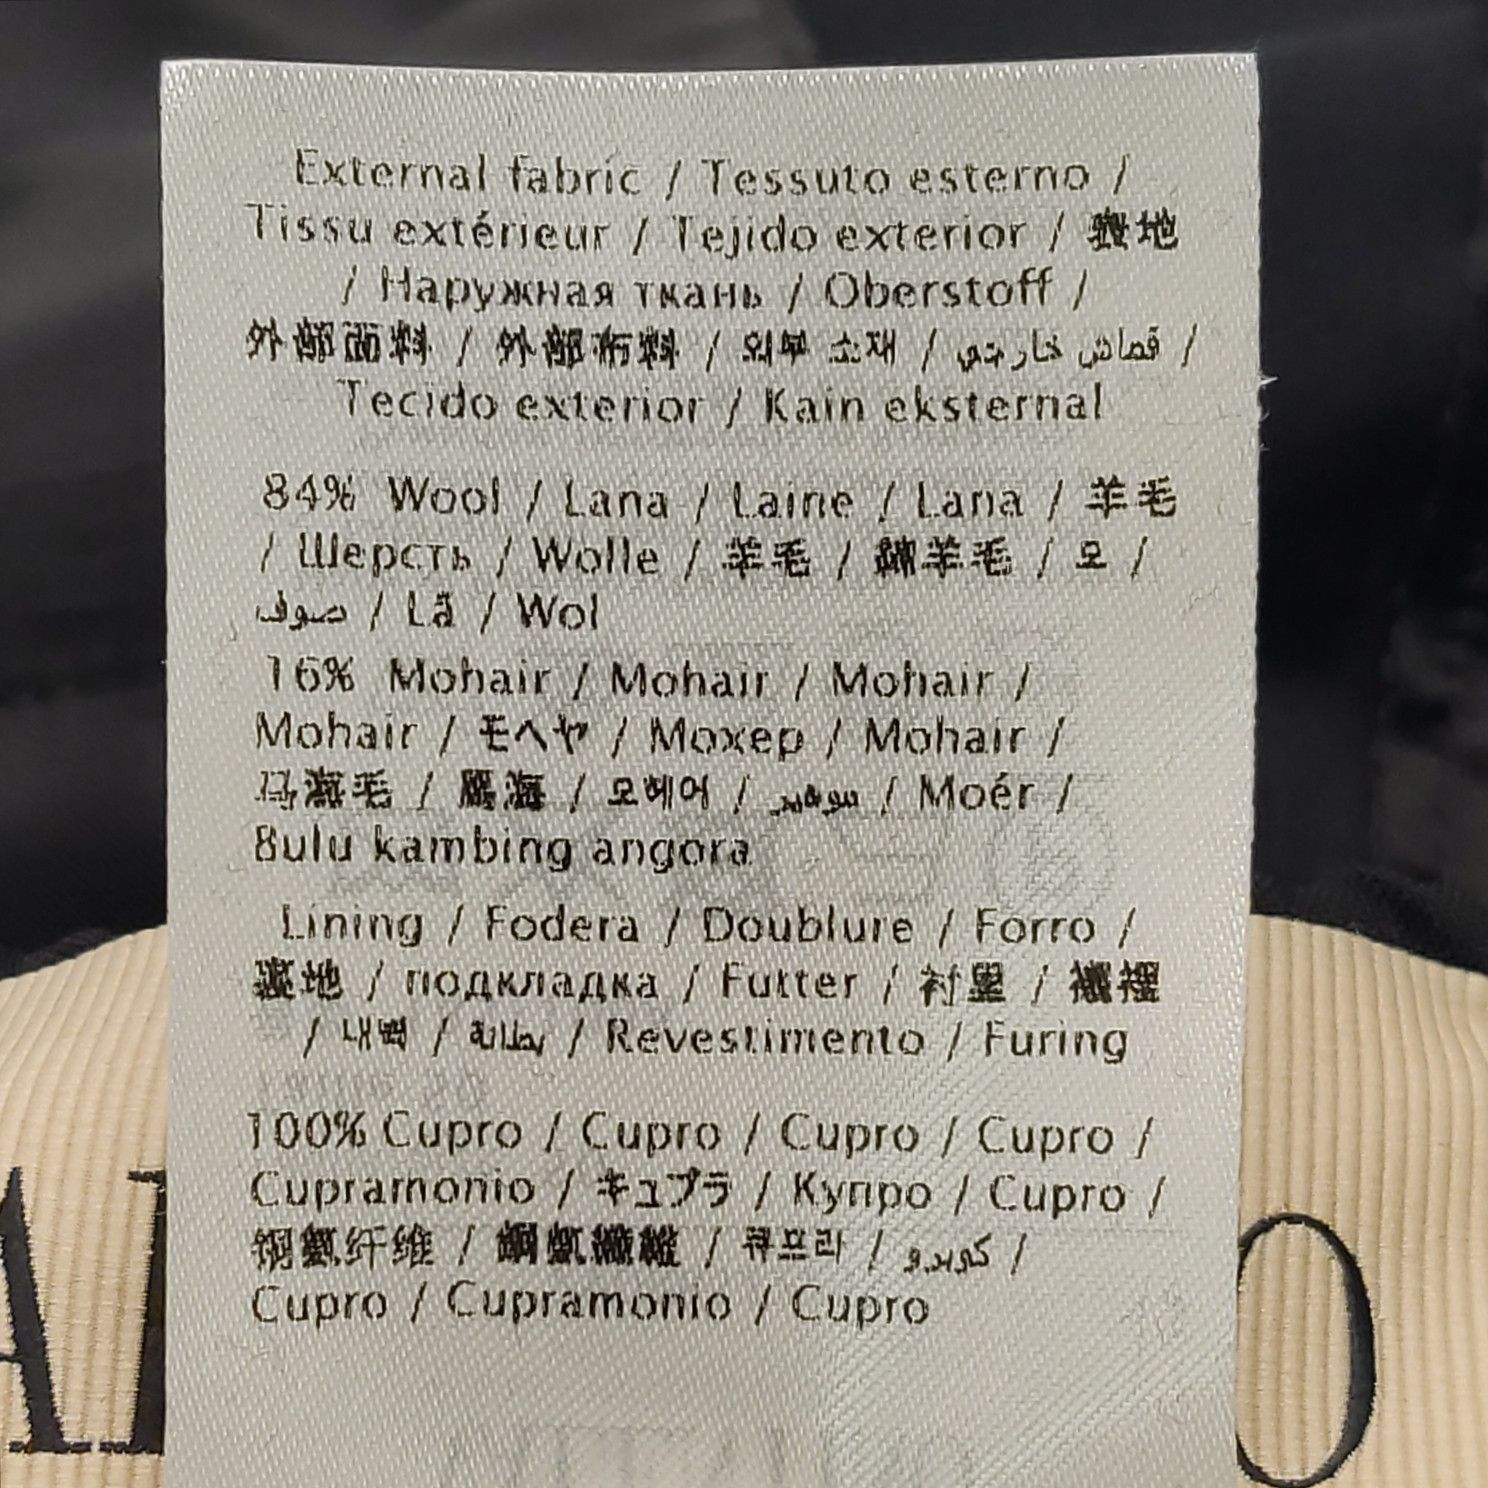 External fabric / Tessuto esterno /
Tissu extérieur / Tejido exterior / 表地
/ Наружная ткань / Oberstoff /
外部面料 / 外部布料 / 외부 소재 / قماش خارجي /
Tecido exterior / Kain eksternal
84% Wool / Lana / Laine / Lana / 羊毛
/ Шерсть / Wolle / 羊毛 / 綿羊毛 / 모 /
صوف / Lã / Wol
16% Mohair / Mohair / Mohair /
Mohair / モヘヤ / Мохер / Mohair /
马海毛 / 馬海 / 모헤어 / موهير / Moér /
Bulu kambing angora
Lining / Fodera / Doublure / Forro /
裏地 / подкладка / Futter / 衬里 / 襯裡
/ 안감 / بطانة / Revestimento / Furing
100% Cupro / Cupro / Cupro / Cupro /
Cupramonio / キュプラ / Купро / Cupro /
铜氨纤维 / 銅氨纖維 / 큐프라 / /
Cupro / Cupramonio / Cupro
O